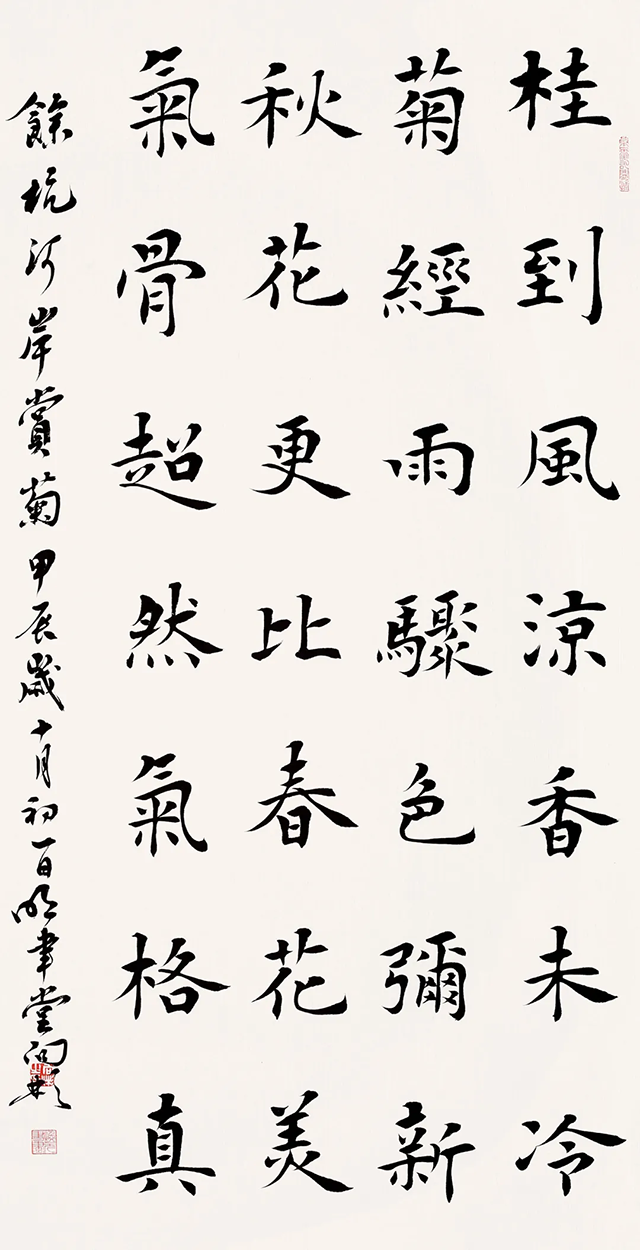 桂到風涼香未冷
菊經雨驟色彌新
秋花更比春花美
氣骨超然氣格真
餘坑河岸賞菊甲辰歲十月初一日